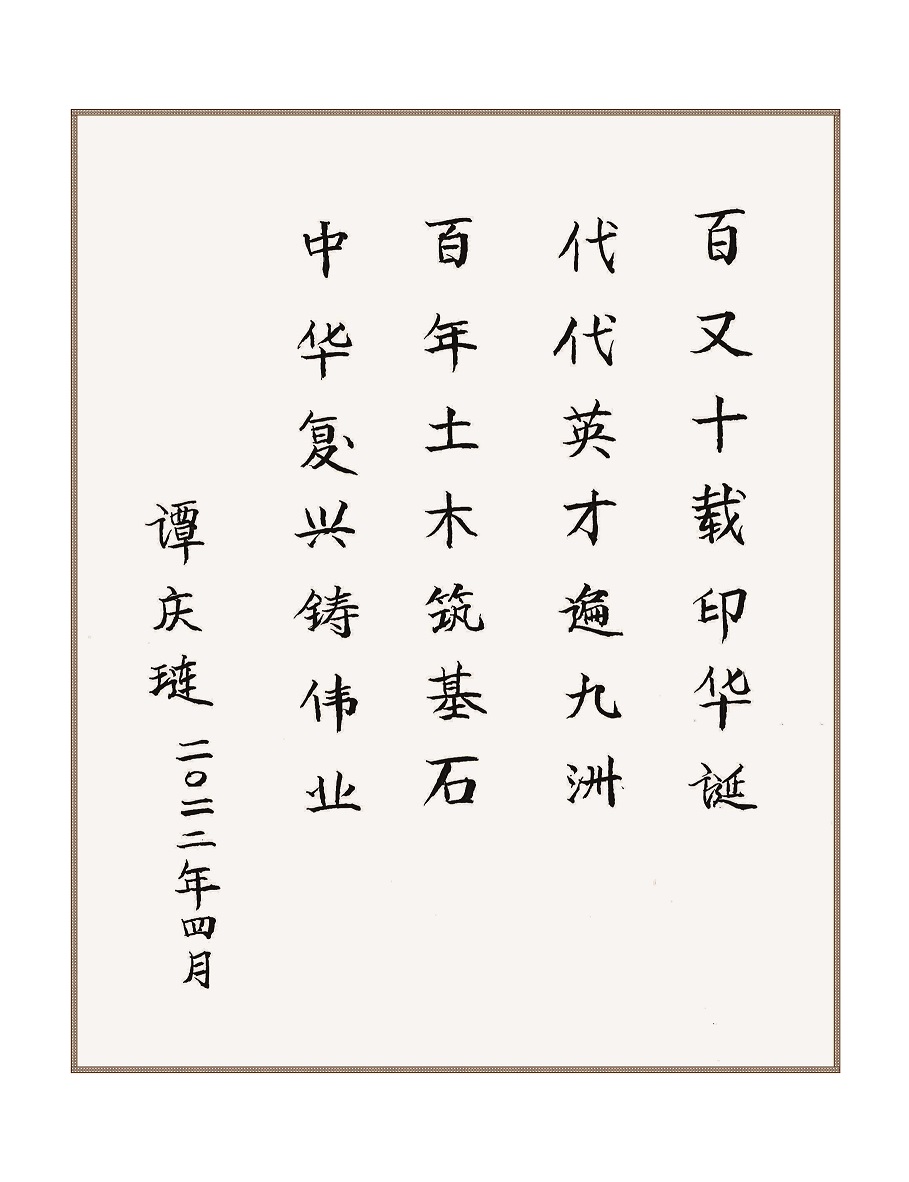 百又十载印华诞
代代英才遍九洲
百年土木筑基石
中华复兴铸伟业
谭庆琏
二〇二二年四月